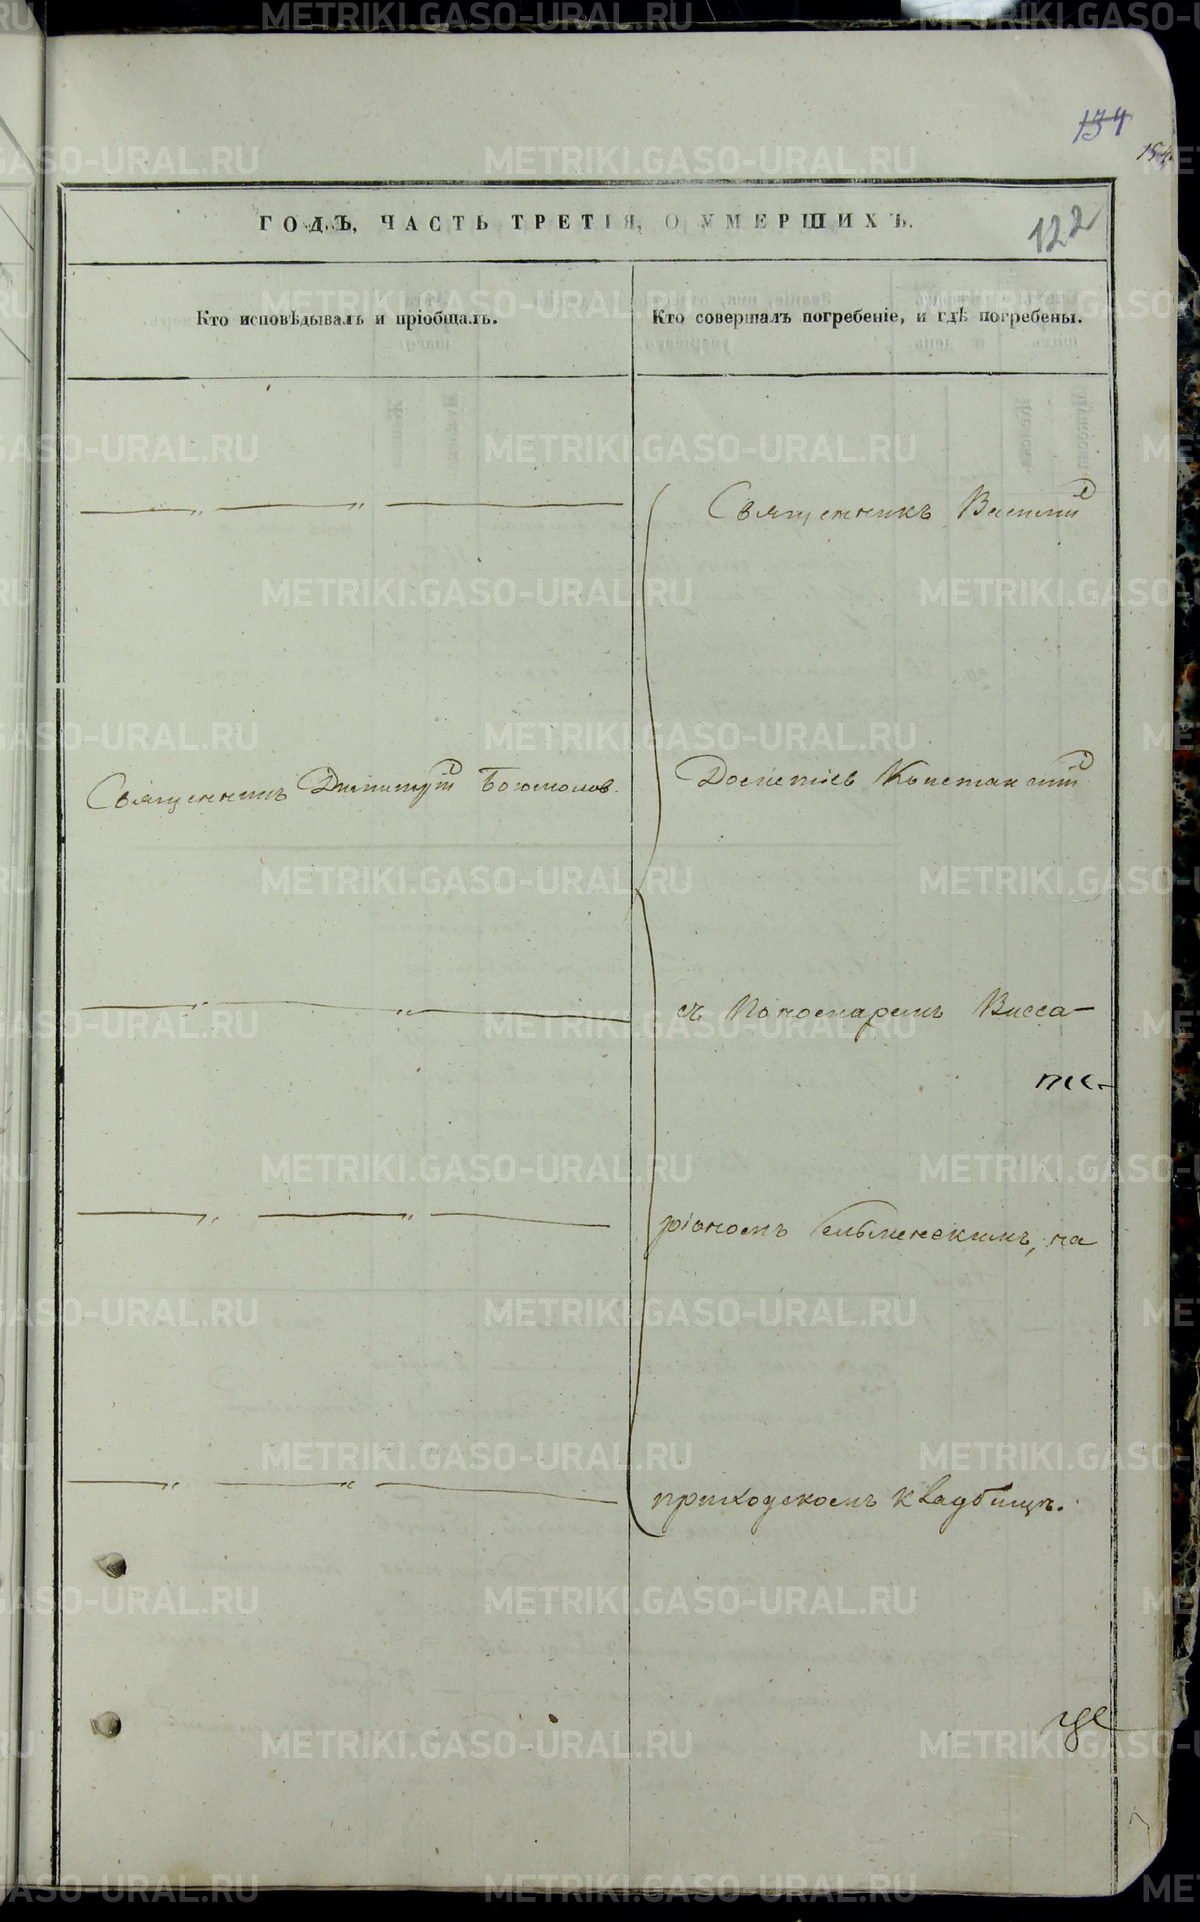 134
ГОДЪ, ЧАСТЬ ТРЕТІЯ, О УМЕРШИХЪ.
122
Кто исповѣдывалъ и пріобщалъ.
Кто совершалъ погребеніе, и гдѣ погребены.
Священникъ Василій
Священникъ Димитрій Богомолов.
Константинъ
съ Пономаремъ Висса-
ріономъ на
приходскомъ кладбищѣ.
METRIKI.GASO-URAL.RU